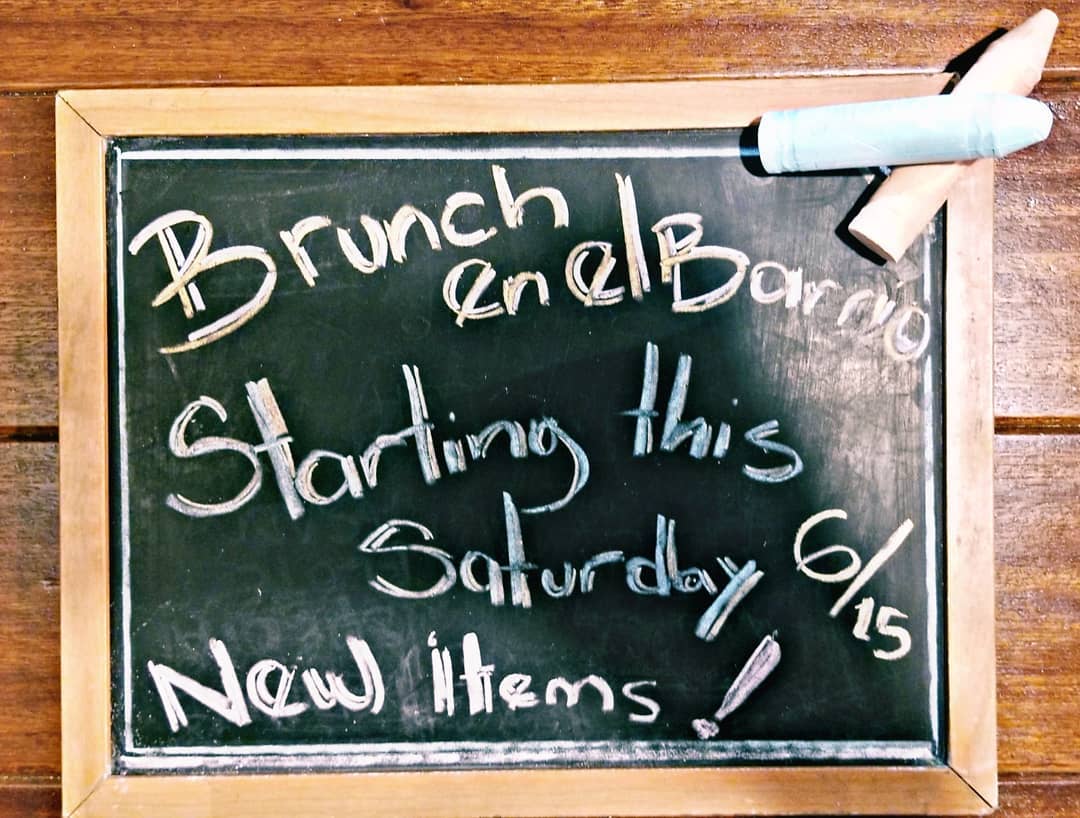 Brunch
en el Barrio
Starting this
Saturday 6/15
New items!